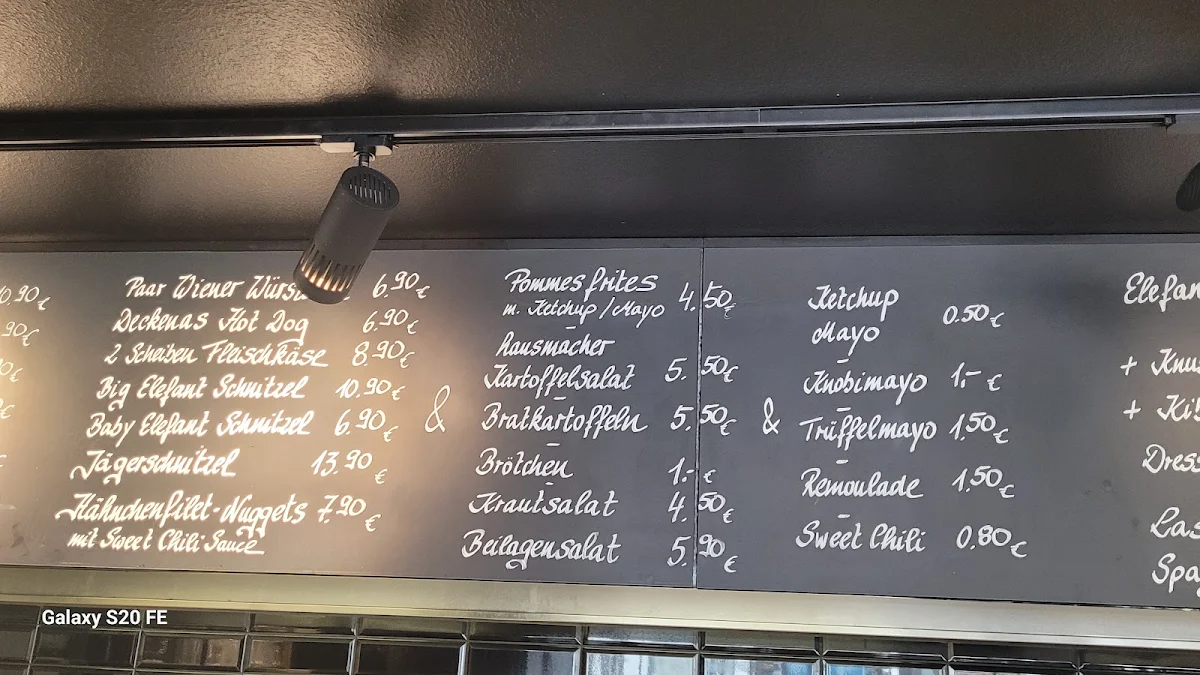 0.90€
.90€
Paar Wiener
6.90€
Deckenas Hot Dog 6.90€
2 Scheiben Fleischkäse 8.90€
Big Elefant Schnitzel 10.90€
Baby Elefant Schnitzel 6.90€
Jägerschnitzel 13.90€
Hähnchenfilet-Nuggets 7.90€
mit Sweet Chili Sauce
&
Pommes frites
m. Ketchup/Mayo 4.50€
hausmacher
Kartoffelsalat 5.50€
Bratkartoffeln 5.50€
Brötchen 1.-€
Krautsalat 4.50€
Beilagensalat 5.90€
&
Ketchup
Mayo 0.50€
Knobimayo 1,-€
Trüffelmayo 1.50€
Remoulade 1.50€
Sweet Chili 0.80€
Elefan
+ Knu
+ Ki
Dres
Las
Spa
Galaxy S20 FE